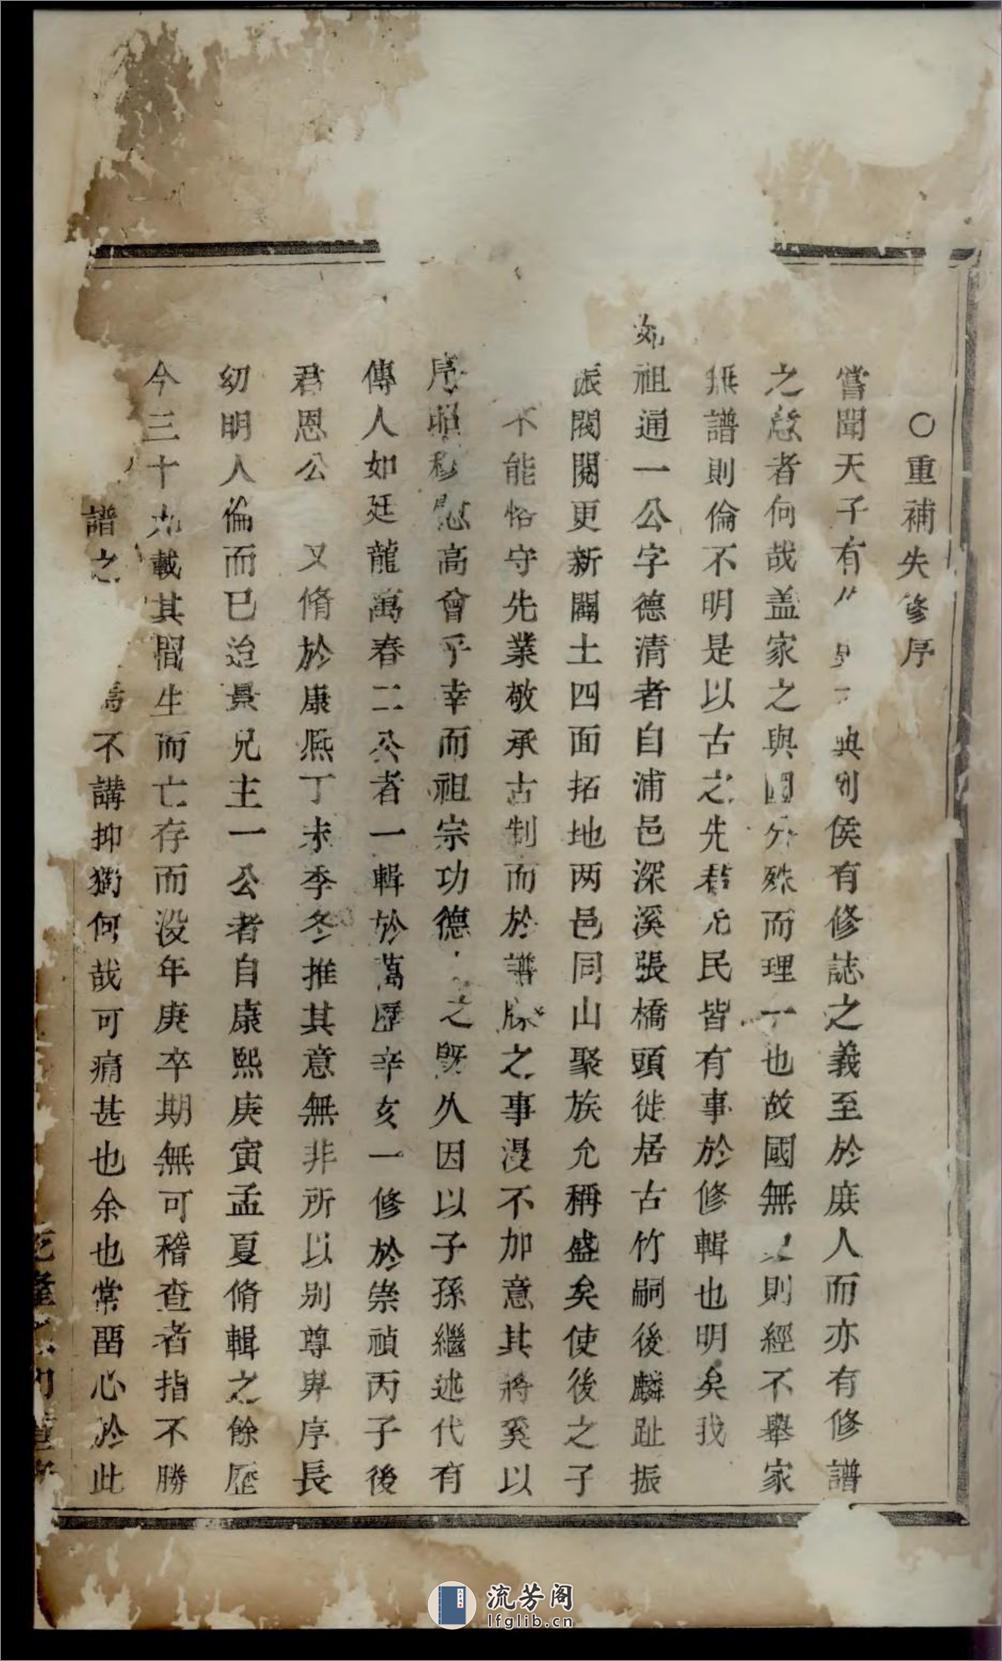 ○重補失修序
嘗聞天子有 典列侯有修誌之義至於庶人而亦有修譜
之意者何哉盖家之與國分殊而理一也故國無 則經不舉家
無譜則倫不明是以古之先君元民皆有事於修輯也明矣我
始祖通一公字德清者自浦邑深溪張橋頭徙居古竹嗣後麟趾振
振閥閱更新闢土四面拓地两邑同山聚族允稱盛矣使後之子
不能恪守先業敬承古制而於譜牒之事漫不加意其將奚以
序昭穆慰高曾乎幸而祖宗功德 之既久因以子孫繼述代有
傳人如廷龍萬春二公者一輯於萬曆辛亥一修於崇禎丙子後
君恩公 又脩於康熙丁未季冬推其意無非所以別尊卑序長
幼明人倫而已迨景兄主一公者自康熙庚寅孟夏脩輯之餘歷
今三十九載其間生而亡存而没年庚卒期無可稽查者指不勝
譜之 不講抑獨何哉可痛甚也余也常畱心於此
流芳阁
lfglib.cn